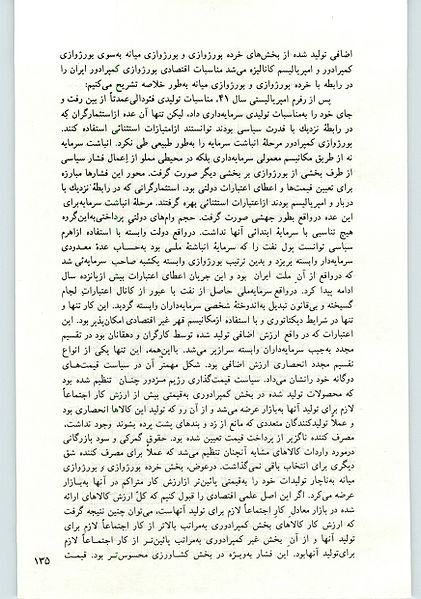 اضافی تولید شده از بخش‌های خرده بورژوازی و بورژوازی میانه به‌سوی بورژوازی
کمپرادور و امپریالیسم کانالیزه می‌شد مناسبات اقتصادی بورژوازی کمپرادور ایران را
در رابطه با خرده بورژوازی و بورژوازی میانه به‌طور خلاصه تشریح می‌کنیم:
پس از رفرم امپریالیستی سال ۴۱، مناسبات تولیدی فئودالی‌عمدتاً از بین رفت و
جای خود را به‌مناسبات تولیدی سرمایه‌داری داد، لیکن تنها آن عده ازاستثمارگران که
در رابطهٔ نزدیك با قدرت سیاسی بودند توانستند ازامتیازات استثنائی استفاده کنند.
بورژوازی کمپرادور مرحلهٔ انباشت سرمایه را به‌طور طبیعی طی نکرد. انباشت سرمایه
نه از طریق مکانیسم معمولی سرمایه‌داری بلکه در محیطی مملو از اِعمال فشار سیاسی
از طرف بخشی از بورژوازی بر بخشی دیگر صورت گرفت. محور این فشارها مبارزه
برای تعیین قیمت‌ها و اعطای اعتبارات دولتی بود. استثمارگرانی که در رابطهٔ نزدیك با
دربار و امپریالیسم بودند ازاعتبارات استثنائی بهره گرفتند. مرحلهٔ انباشت سرمایه‌برای
این عده درواقع بطور جهشی صورت گرفت. حجم وام‌های دولتی پرداختی‌به‌این‌گروه
هیچ تناسبی با سرمایهٔ ابتدائی آنها نداشت. درواقع دولت وابسته با استفاده ازاهرم
سیاسی توانست پول نفت را که سرمایهٔ انباشتهٔ ملـی بود به‌حساب عدهٔ معـدودی
سرمایه‌دار وابسته بریزد و بدین ترتیب بورژوازی وابسته یکشبه صاحب سرمایه‌ئی شد
که درواقع از آن ملت ایران بود و این جریان اعطای اعتبارات بیش ازپانزده سال
ادامه پیدا کرد. درواقع سرمایه‌ملی حاصل از نفت با عبور از کانال اعتبارات لجام
گسیخته و بی‌قانون تبدیل به‌اندوختهٔ شخصی سرمایه‌داران وابسته گردید. این کار تنها و
تنها در شرایط دیکتاتوری و با استفاده ازمکانیسم قهر غیر اقتصادی امکان‌پذیر بود. این
اعتبارات که در واقع ارزش اضافی تولید شده توسط کارگران و دهقانان بود در تقسیم
مجدد به‌جیب سرمایه‌داران وابسته سرازیر می‌شد. بااین‌همه، این تنها یکی از انواع
تقسیم مجدد انحصاری ارزش اضافی بود. شکل مهمتر آن در سیاست قیمت‌های
دوگانه خود رانشان می‌داد. سیاست قیمت‌گذاری رژیم مـزدور چنـان تنظیم شده بود
که محصولات تولید شده در بخش کمپرادوری به‌قیمتی بیش از ارزش کار اجتماعاً
لازم برای تولید آنها به‌بازار عرضه می‌شد و از آن رو که تولید این کالاها انحصاری بود
و عملاً تولیدکنندگان متعددی که مانع از زد و بندهای پشت پرده بشوند وجود نداشت،
مصرف کننده ناگزیر از پرداخت قیمت تعیین شده بود. حقوق گمرکی و سود بازرگانی
درمورد واردات کالاهای مشابه آنچنان تنظیم می‌شد که عملاً برای مصرف کننده شق
دیگری برای انتخاب باقی نمی‌گذاشت. درعوض، بخش خرده بورژوازی و بورژوازی
میانه به‌ناچار تولیدات خود را به‌قیمتی پائین‌تر ازارزش کار متراکم در آنها به‌بـازار
عرضه می‌کرد. اگر این اصل علمی اقتصادی را قبول کنیم که کلّ ارزش کالاهای ارائه
شده در بازار معادلِ کار اجتماعاً لازم برای تولید آنهاست، می‌توان چنین نتیجه گرفت
که ارزش کار کالاهای بخش کمپرادوری به‌مراتب بالاتر از کار اجتماعاً لازم برای
تولید آنها و از آن بخش غیر کمپرادوری به‌مراتب پائین‌تـر از کار اجتمـاعـاً لازم
برای‌تولید آنهابود. این فشار به‌ویژه در بخش کشـاورزی محسوس‌تـر بود. قیمـت
۱۳۵